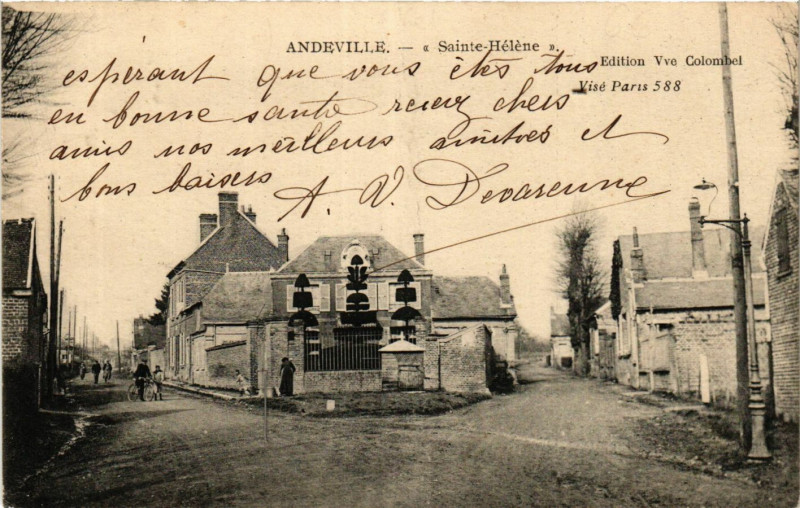 ANDEVILLE. — « Sainte-Hélène ».
Edition Vve Colombel
Visé Paris 588
espérant que vous êtes tous
en bonne sante recevez chers
amis nos meilleurs amitiés et
bons baisers A. V. Devarenne